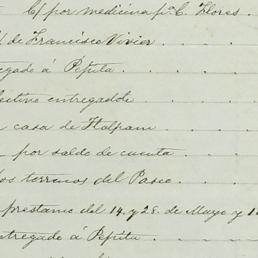 C/ por medicina pa. C. Flores
de Francisco Vivier
egado á Pepita
fectivo entregadole
casa de Tlalpam
por saldo de cuenta
los terrenos del Paseo
prestamo del 14 y 28 de Mayo y 1
ntregado á Pepita